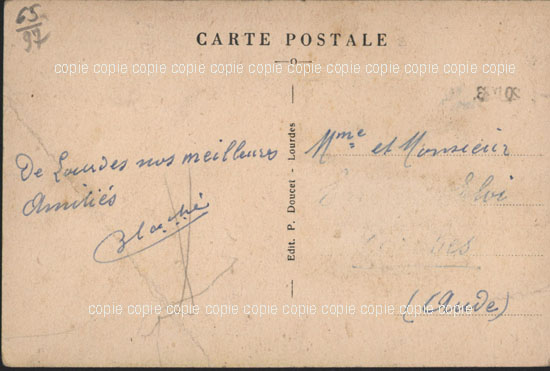 65
97
CARTE POSTALE
copie copie copie copie copie copie copie copie copie copie copie copie
Mme et Monsieur
De Lourdes nos meilleures
Amitiés
Eloi
(Aude)
Edit. P. Doucet - Lourdes
copie copie copie copie copie copie copie copie copie copie copie